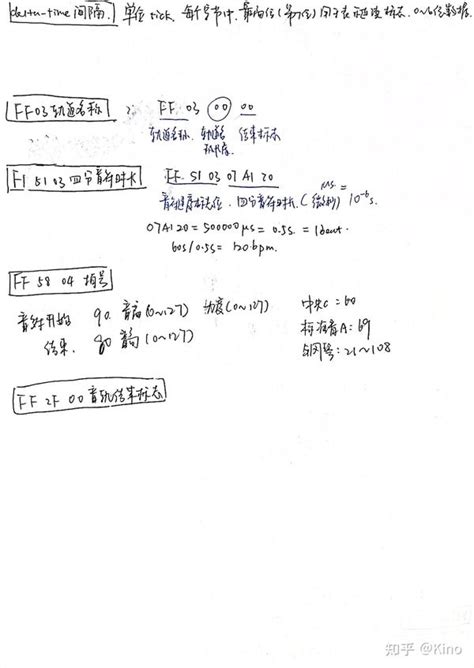 delta-time 间隔. 单位 tick, 每个字节中, 最高位(第7位)用于表示延续标志, 0~6位数据.
FF 03 轨道名称 : FF 03 00 00
轨道名称. 轨道名 结束标志
FF 51 03 四分音符时长 FF 51 03 07 A1 20
四分音符时长. (微秒) μs = 10⁻⁶s.
07A120 = 500000μs = 0.5s. = 1beat.
60s/0.5s = 120 bpm.
FF 58 04 拍号
音符开始 90 音高(0~127) 力度(0~127) 中央C = 60
结束. 80 音高(0~127) 标准音A: 69
钢琴: 21~108
FF 2F 00 音轨结束标志
知乎 @Kino